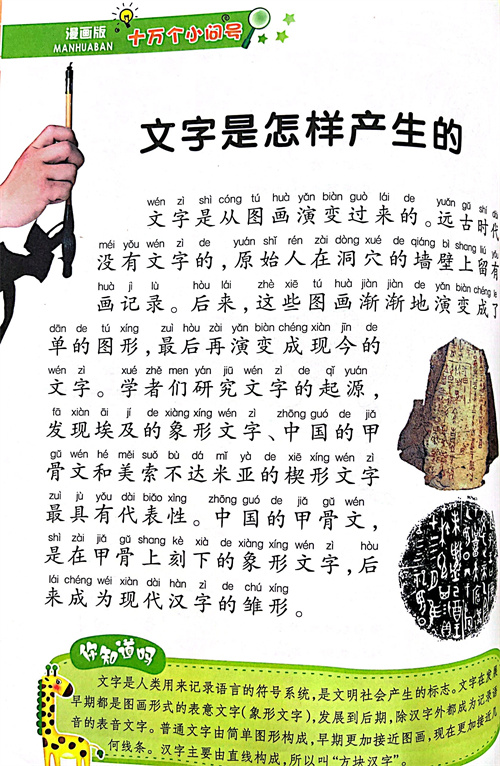 漫画版
MANHUABAN
十万个小问号
文字是怎样产生的
wén zì shì cóng tú huà yǎn biàn guò lái de yuǎn gǔ shí dài
文字是从图画演变过来的。远古时代
méi yǒu wén zì de yuán shǐ rén zài dòng xué de qiáng bì shang liú yǒu
没有文字的,原始人在洞穴的墙壁上留有
huà jì lù hòu lái zhè xiē tú huà jiàn jiàn de yǎn biàn chéng le
画记录。后来,这些图画渐渐地演变成了
dān de tú xíng zuì hòu zài yǎn biàn chéng xiàn jīn de
单的图形,最后再演变成现今的
wén zì xué zhě men yán jiū wén zì de qǐ yuán
文字。学者们研究文字的起源,
fā xiàn āi jí de xiàng xíng wén zì zhōng guó de jiǎ
发现埃及的象形文字、中国的甲
gǔ wén hé měi suǒ bù dá mǐ yà de xiē xíng wén zì
骨文和美索不达米亚的楔形文字
zuì jù yǒu dài biǎo xìng zhōng guó de jiǎ gǔ wén
最具有代表性。中国的甲骨文,
shì zài jiǎ gǔ shang kè xià de xiàng xíng wén zì hòu
是在甲骨上刻下的象形文字,后
lái chéng wéi xiàn dài hàn zì de chú xíng
来成为现代汉字的雏形。
你知道吗
文字是人类用来记录语言的符号系统,是文明社会产生的标志。文字在发展
早期都是图画形式的表意文字(象形文字),发展到后期,除汉字外都成为记录语
音的表音文字。普通文字由简单图形构成,早期更加接近图画,现在更加接近几
何线条。汉字主要由直线构成,所以叫“方块汉字”。